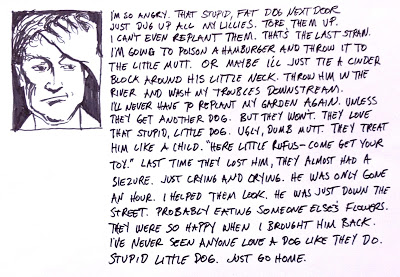 I'M SO ANGRY. THAT STUPID, FAT DOG NEXT DOOR
JUST DUG UP ALL MY LILLIES. TORE THEM UP.
I CAN'T EVEN REPLANT THEM. THAT'S THE LAST STRAW.
I'M GOING TO POISON A HAMBURGER AND THROW IT TO
THE LITTLE MUTT. OR MAYBE I'LL JUST TIE A CINDER
BLOCK AROUND HIS LITTLE NECK. THROW HIM IN THE
RIVER AND WASH MY TROUBLES DOWNSTREAM.
I'LL NEVER HAVE TO REPLANT MY GARDEN AGAIN. UNLESS
THEY GET ANOTHER DOG. BUT THEY WON'T. THEY LOVE
THAT STUPID, LITTLE DOG. UGLY, DUMB MUTT. THEY TREAT
HIM LIKE A CHILD. "HERE LITTLE RUFUS- COME GET YOUR
TOY." LAST TIME THEY LOST HIM, THEY ALMOST HAD A
SIEZURE. JUST CRYING AND CRYING. HE WAS ONLY GONE
AN HOUR. I HELPED THEM LOOK. HE WAS JUST DOWN THE
STREET. PROBABLY EATING SOMEONE ELSE'S FLOWERS.
THEY WERE SO HAPPY WHEN I BROUGHT HIM BACK.
I'VE NEVER SEEN ANYONE LOVE A DOG LIKE THEY DO.
STUPID LITTLE DOG. JUST GO HOME.